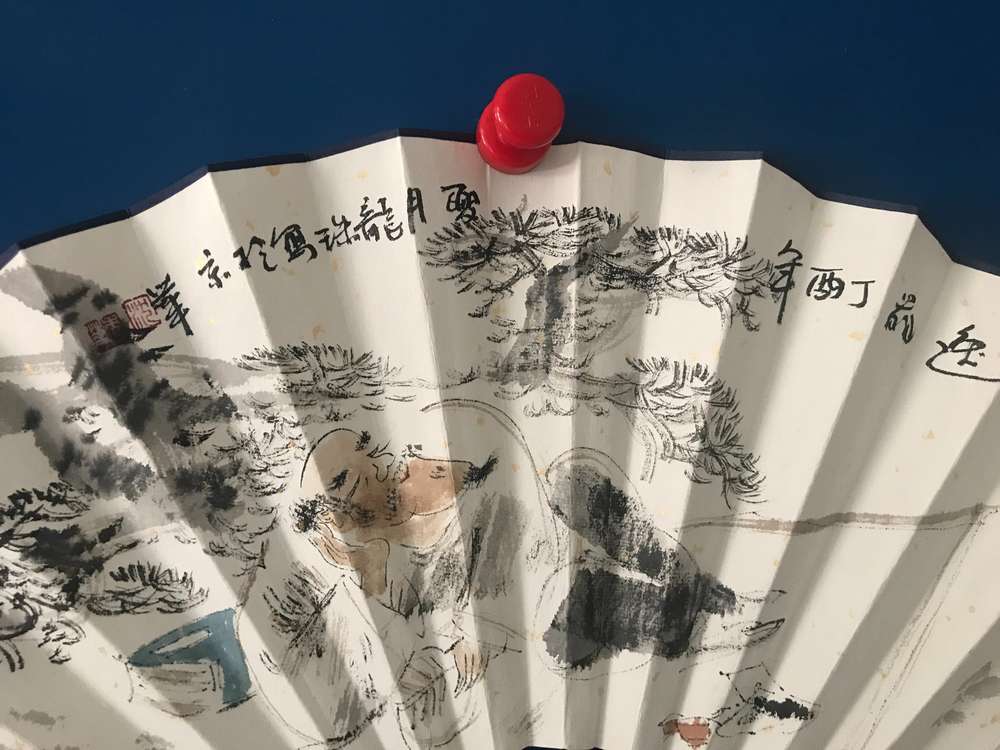 逸
丁酉年
夏月龍珠寫於京華